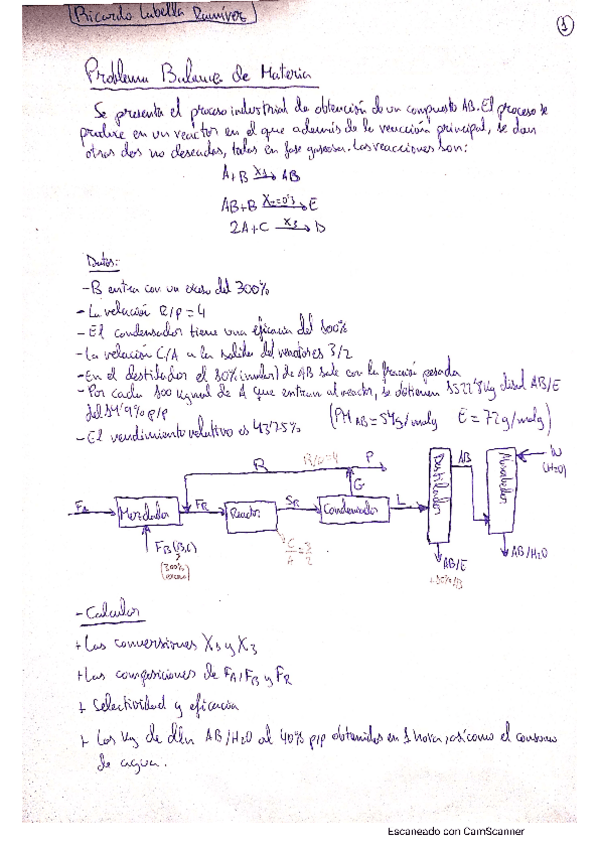 Ricardo Lubella Ramirez
1
Problema Balance de Materia
Se presenta el proceso industrial de obtención de un compuesto AB. El proceso se
produce en un reactor en el que además de la reacción principal, se dan
otras dos no deseadas, todas en fase gaseosa. Las reacciones son:
A+B X1→ AB
AB+B X2=0'3→ E
2A+C X3→ D
Datos:
- B entra con un exceso del 300%
- La relación R/P = 4
- El condensador tiene una eficacia del 100%
- La relación C/A a la salida del reactor es 3/2
- En el destilador el 10% (molar) de AB sale con la fracción pesada
- Por cada 100 kgmol de A que entran al reactor, se obtienen 1522'8 Kg disol AB/E
del 14'9% p/p
- El rendimiento relativo es 43'75% (PM AB=54g/molg E=72g/molg)
R R/P=4 P
G
FA Mezclador FR Reactor SR Condensador L Destilador AB Absorbedor W
(H2O)
FB (B,C)
(300%
exceso)
C/A = 3/2
AB/E
+10% AB
AB/H2O
- Calcular
+ Las conversiones X1 y X3
+ Las composiciones de FA, FB y FR
+ Selectividad y eficacia
+ Los Kg de dlln AB/H2O al 40% p/p obtenidos en 1 hora, así como el consumo
de agua.
Escaneado con CamScanner